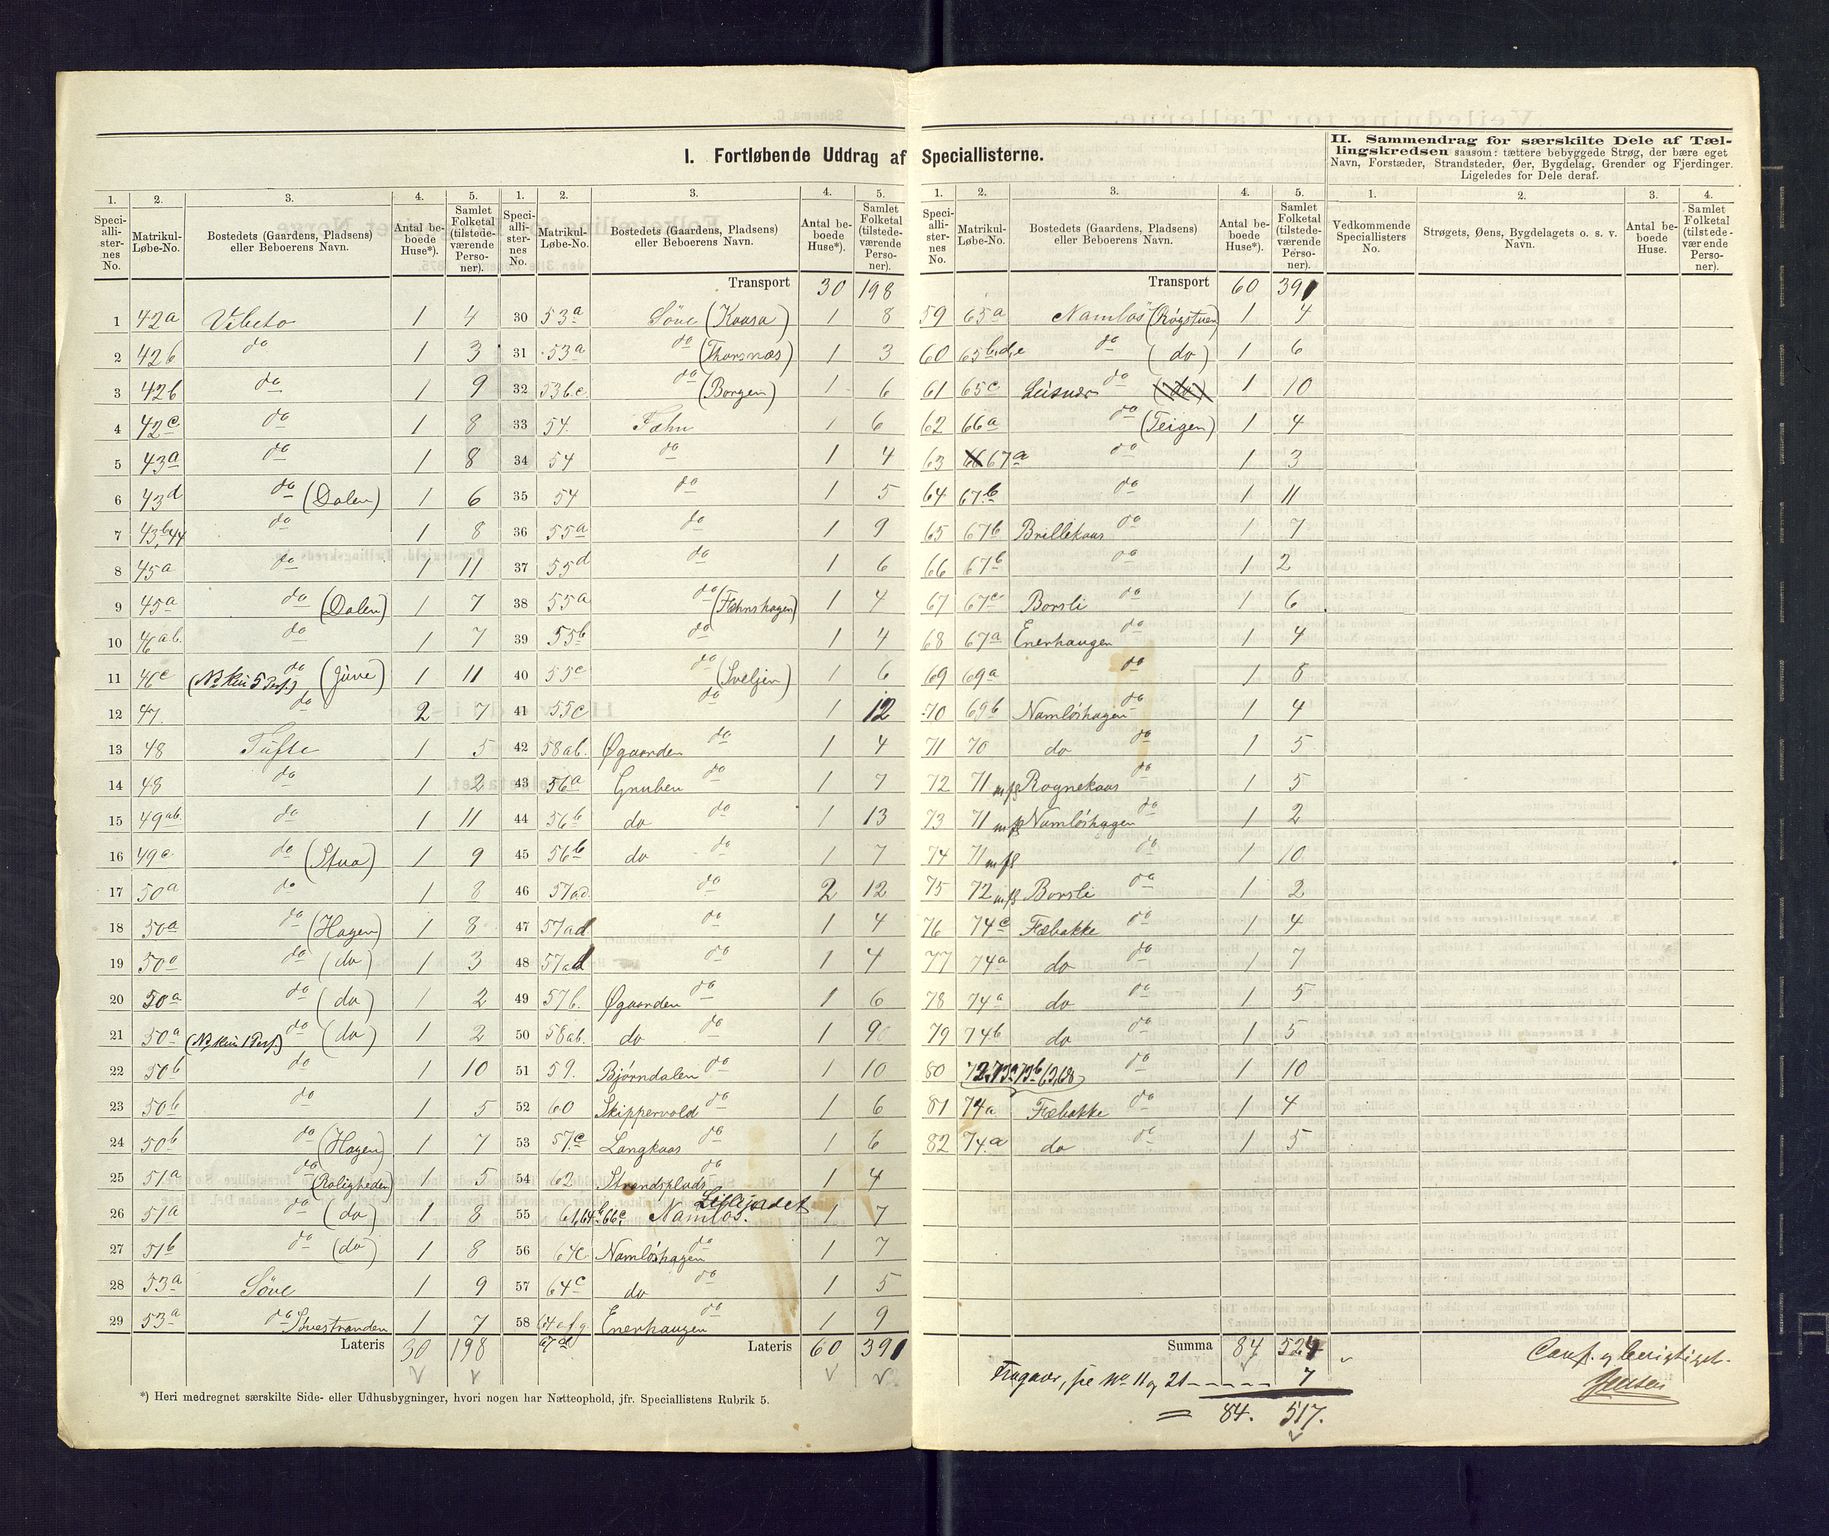 I. Fortløbende Uddrag af Speciallisterne.
II. Sammendrag for særskilte Dele af Tæl-
lingskredsen saasom: tættere bebyggede Strøg, der bære eget
Navn, Forstæder, Strandsteder, Øer, Bygdelag, Grender og Fjerdinger.
Ligeledes for Dele deraf.
1. 2. 3. 4. 5.
Speci-allister-nes No. Matrikul-Løbe-No. Bostedets (Gaardens, Pladsens) eller Beboerens Navn. Antal be-boede Huse*). Samlet Folketal (tilstede-værende Perso-ner).
1 42a Vibeto 1 4
2 42b do 1 3
3 42b do 1 9
4 42c do 1 8
5 43a do 1 8
6 43d do (Dalen) 1 6
7 43b,44 do 1 8
8 45a do 1 11
9 45a do (Dalen) 1 7
10 46ab. do 1 7
11 46c (NB kun 5 Pers.) do (Juve) 1 11
12 47. do 2 7
13 48 Tufte 1 5
14 48 do 1 2
15 49ab. do 1 11
16 49c. do (Stua) 1 9
17 50a do 1 8
18 50a do (Hagen) 1 8
19 50a do (do) 1 3
20 50a do (do) 1 2
21 50a (NB kun 1 Pers.) do (do) 1 2
22 50b do 1 10
23 50b do 1 5
24 50b do (Hagen) 1 7
25 51a do (Roligheden) 1 5
26 51a do (do) 1 8
27 51b do (do) 1 8
28 53a Söve 1 9
29 53a do Sövestranden 1 7
Lateris 30 198
1. 2. 3. 4. 5.
Speci-allister-nes No. Matrikul-Løbe-No. Bostedets (Gaardens, Pladsens) eller Beboerens Navn. Antal be-boede Huse*). Samlet Folketal (tilstede-værende Perso-ner).
Transport 30 198
30 53a Söve (Kaasa) 1 8
31 53a do (Thorsnæs) 1 3
32 53b.c. do (Borgen) 1 6
33 54. Fæhn 1 6
34 54 do 1 4
35 54 do 1 5
36 55a do 1 9
37 55d do 1 6
38 55a do (Fæhnshagen) 1 4
39 55b do 1 4
40 55c do (Sveljen) 1 6
41 55c do 1 12
42 58ab. Øgaarden do 1 4
43 56a Gruben do 1 7
44 56b do do 1 13
45 56b do do 1 7
46 57ad. do 2 12
47 57ad do 1 4
48 57ad do 1 4
49 57b. Øgaarden do 1 6
50 58ab. do do 1 9
51 59. Bjørndalen do 1 10
52 60 Skippervold do 1 6
53 57.c Langkaas do 1 6
54 62 Strandsplads do 1 4
55 61,64b,66c, Namlös. Lillejordet 1 7
56 64c. Namlöshagen do 1 7
57 64c do do 1 5
58 64a.f.g. Enerhaugen do 1 9
67d Lateris 60 391
*) Heri medregnet særskilte Side- eller Udhusbygninger, hvori nogen har Natteophold, jfr. Speciallistens Rubrik 5.
1. 2. 3. 4. 5.
Speci-allister-nes No. Matrikul-Løbe-No. Bostedets (Gaardens, Pladsens) eller Beboerens Navn. Antal be-boede Huse*). Samlet Folketal (tilstede-værende Perso-ner).
Transport 60 391
59 65a Namlös (Røgstuen) 1 4
60 65b,d,e do (do) 1 6
61 65c do (do) 1 10
62 66a do (Teigen) 1 4
63 66 67a do 1 3
64 67.b do 1 11
65 67b Brillekaas do 1 7
66 67b do 1 2
67 67c Borsli do 1 6
68 67a Enerhaugen do 1 4
69 69a do 1 8
70 69b Namlöshagen do 1 4
71 70 do do 1 5
72 71 Rognekaas do 1 5
73 71 Namlöshagen do 1 2
74 71 do 1 10
75 72 Borsli do 1 2
76 74c Fæbakke do 1 4
77 74a do do 1 7
78 74a do do 1 5
79 74b do do 1 5
80 72,73a,73b,63,68 do 1 10
81 74a. Fæbakke do 1 4
82 74.a do do 1 5
Summa 84 524
Fragaar, se No 11 og 21 - - - - - 7
= 84. 517.
1. 2. 3. 4.
Vedkommende Speciallisters No. Strøgets, Øens, Bygdelagets o. s. v. Navn. Antal be-boede Huse. Samlet Folketal (tilstede-værende Perso-ner).
Conf. og berigtiget.
Jensen